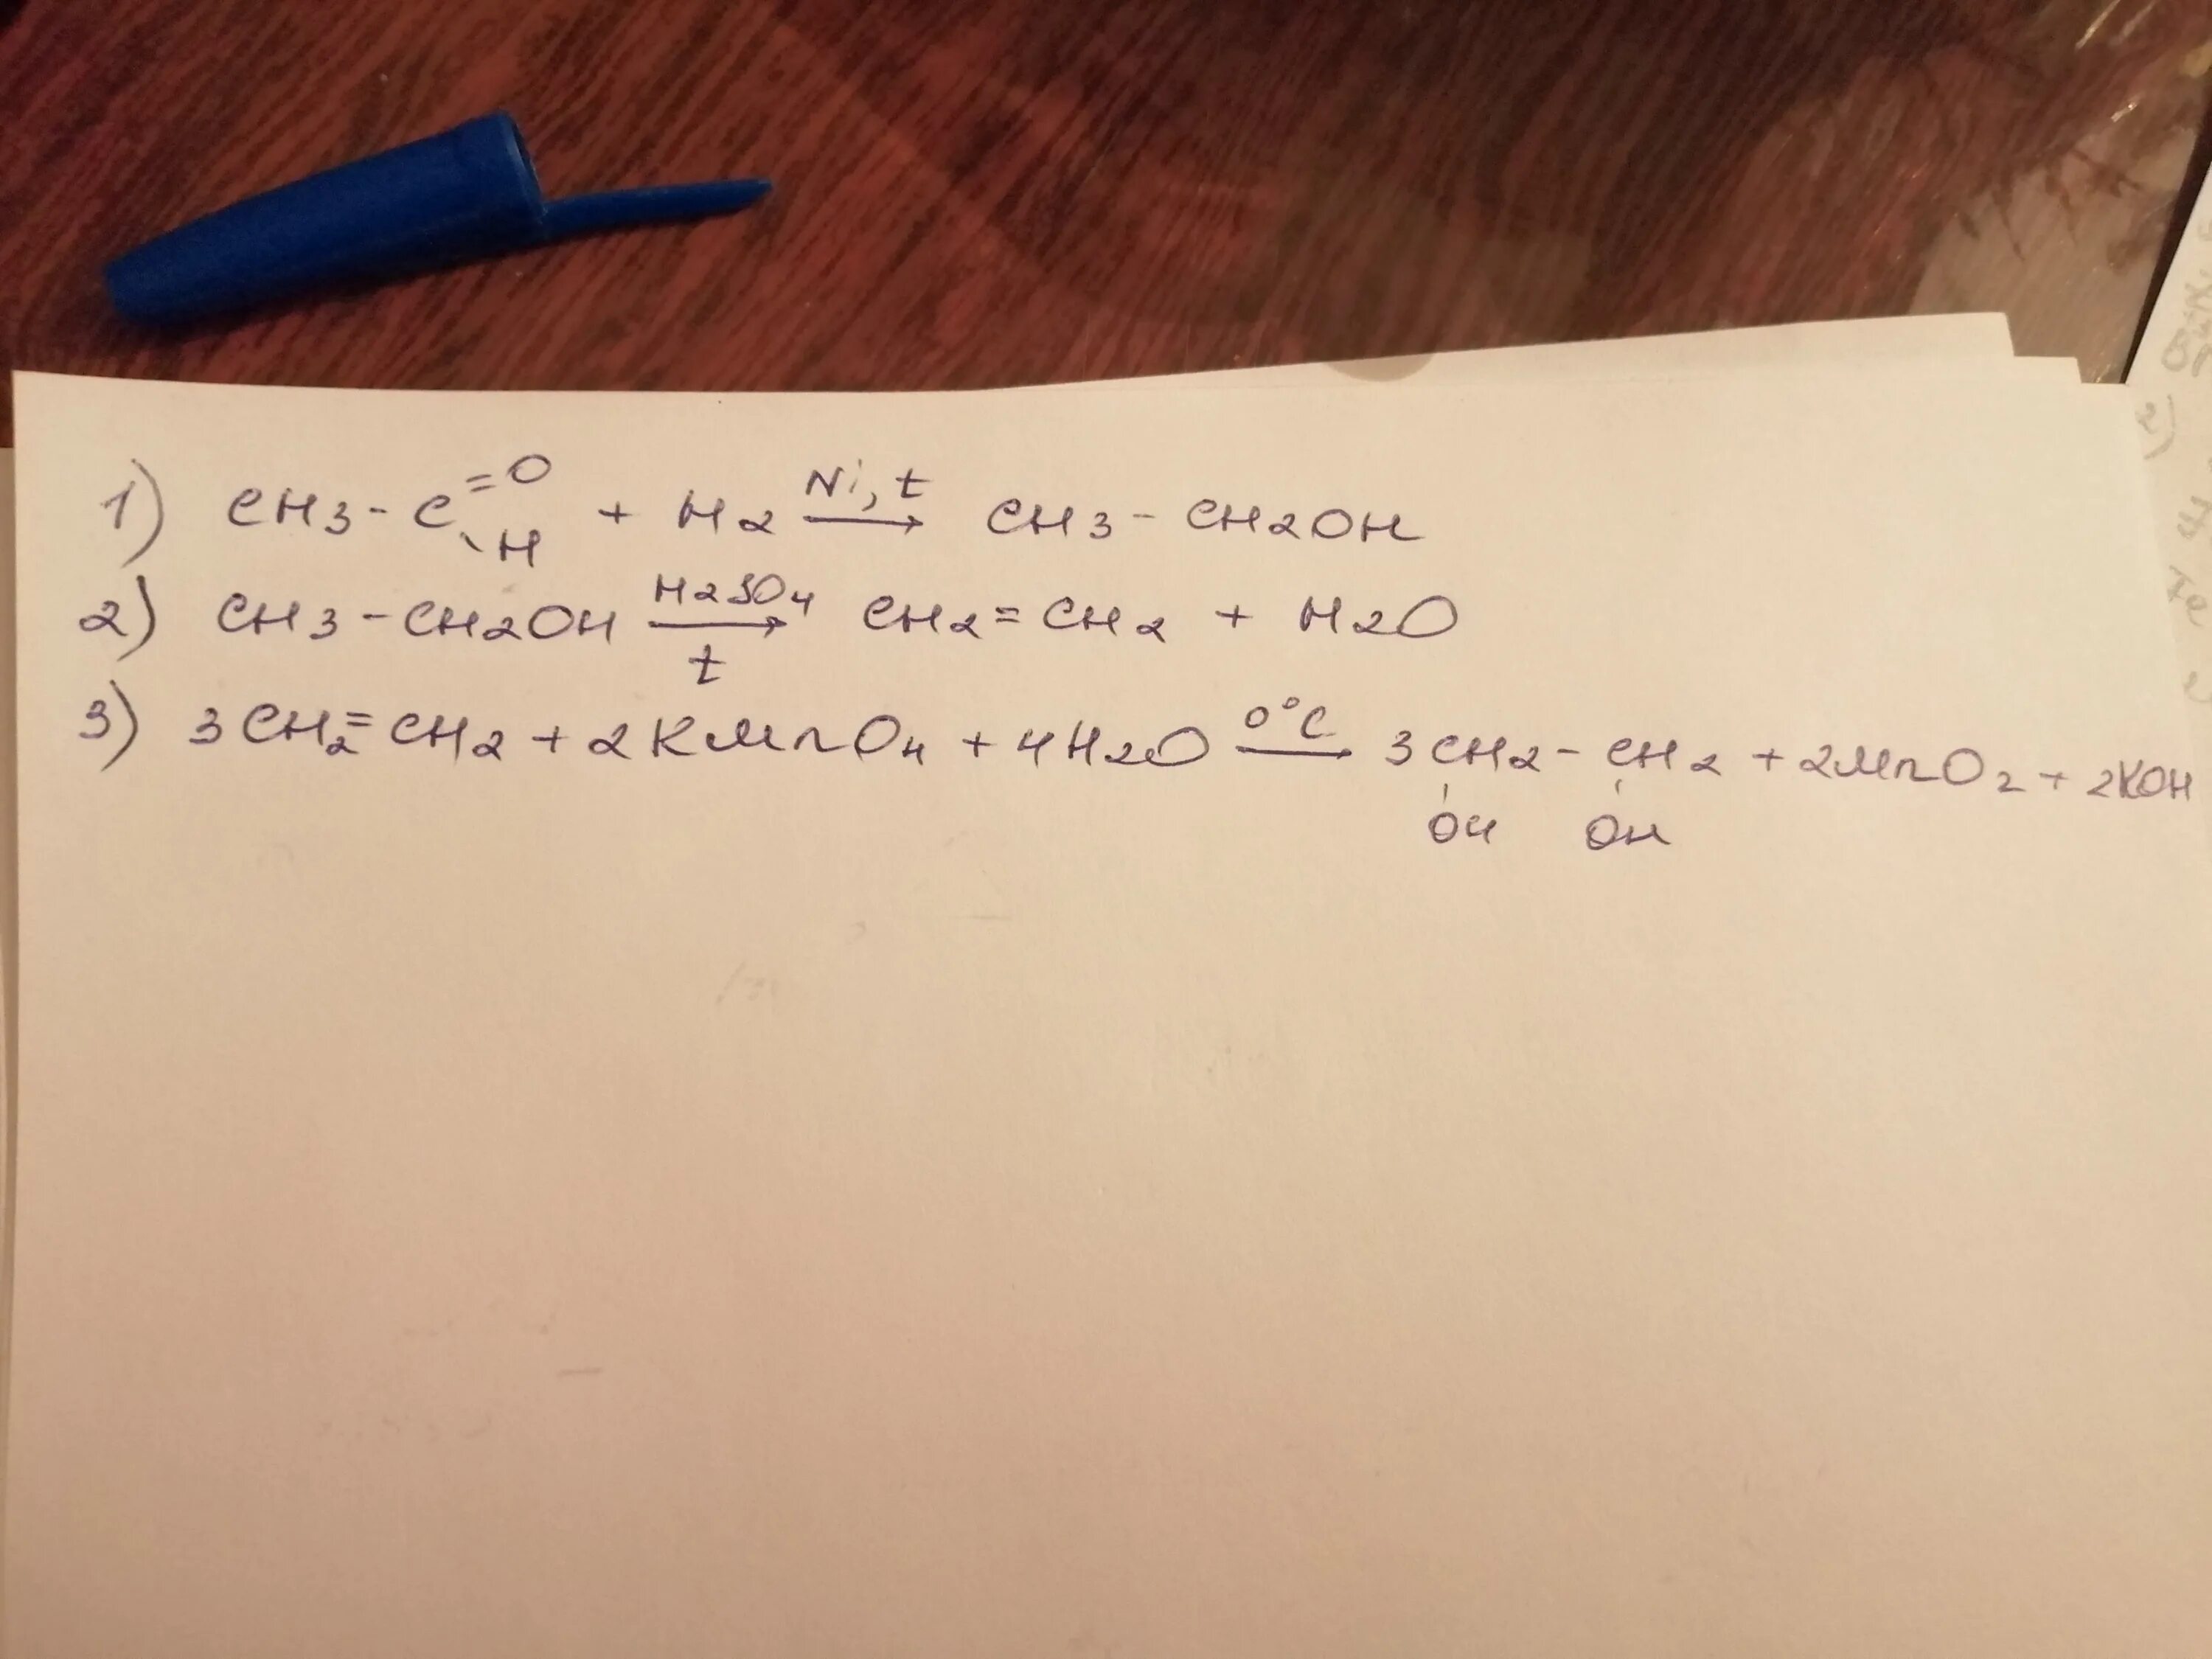 1) CH3-C=O-H + H2 Ni, t → CH3-CH2OH
2) CH3-CH2OH H2SO4 → t CH2=CH2 + H2O
3) 3CH2=CH2 + 2KMnO4 + 4H2O 0°C → 3CH2-CH2 + 2MnO2 + 2KOH
OH OH